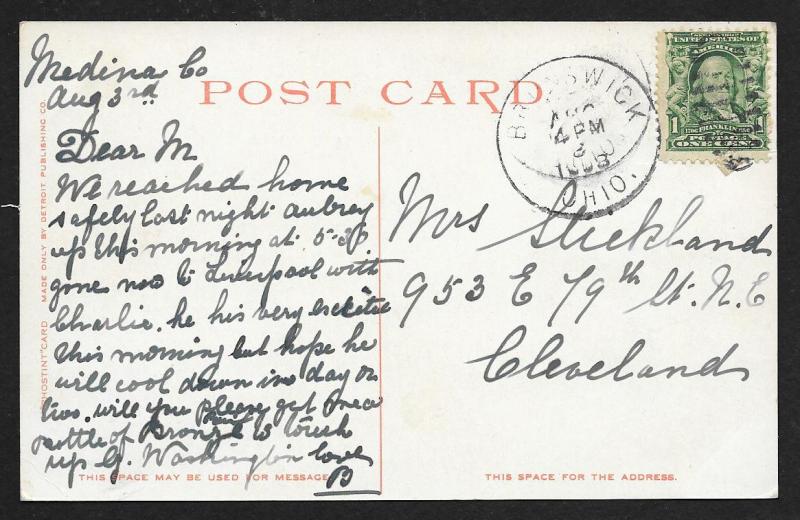 Medina Co
Aug 3rd
POST CARD
Dear M
We reached home
safely last night Aubrey
up this morning at 5-30
gone now to Liverpool with
Charlie. he his very excited
this morning but hope he
will cool down in day or
two. will you please get me a
bottle of Bronze Paint to touch
up G. Washington love
B
THIS SPACE MAY BE USED FOR MESSAGE
"PHOSTINT" CARD MADE ONLY BY DETROIT PUBLISHING CO.
BRUNSWICK
AUG
4 PM
3
1908
OHIO.
UNITED STATES OF
AMERICA
1 FRANKLIN
POSTAGE
ONE CENT
Mrs Stickland
953 E 79th St. N. E
Cleveland
THIS SPACE FOR THE ADDRESS.